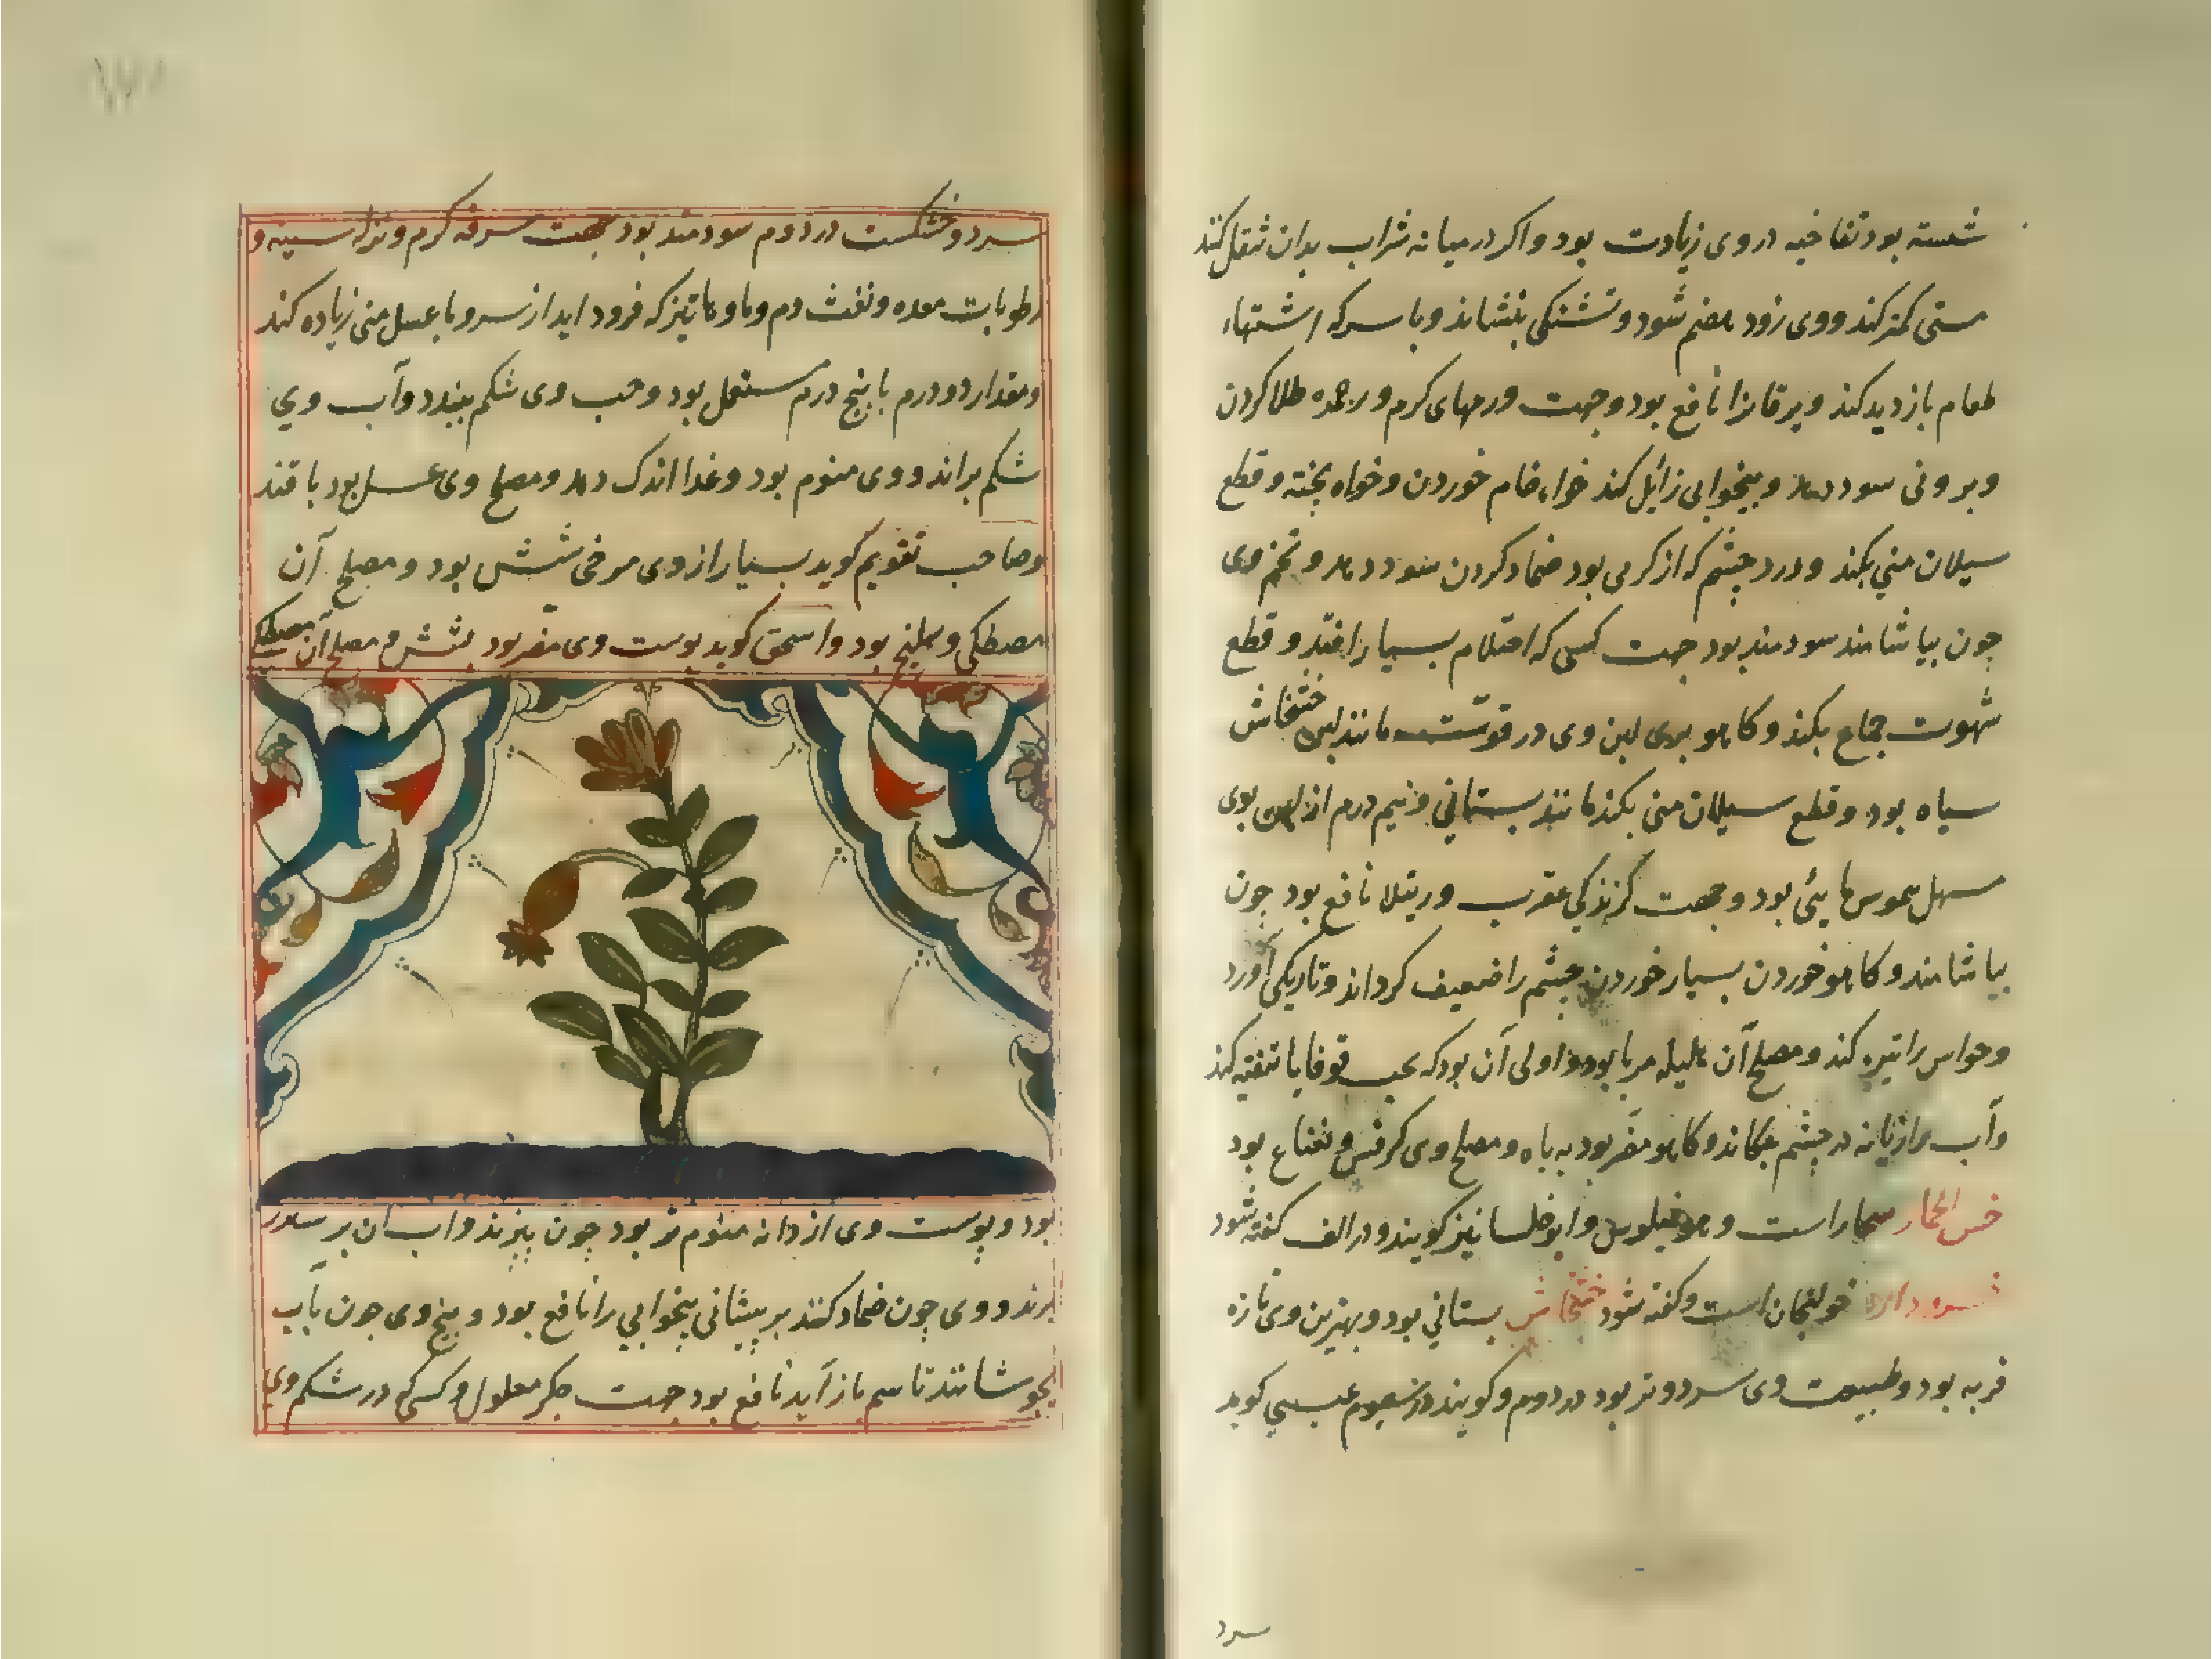 شسته بود نفاخیه در وی زیادت بود و اکر در میانه شراب بدان نقل کنند
مستی کمتر کند و وی زود هضم شود و تشنکی بنشاند و با سرکه اشتهاء
طعام بازدید کند و یرقانرا نافع بود و جهت ورمهای کرم و حمره طلا کردن
و بیخوابی زائل کند خواه خام خوردن و خواه پخته و قطع
سیلان منی بکند و درد چشم که از کرمی بود ضماد کردن سود دهد و تخم وی
چون بیاشامند سودمند بود جهت کسی که احتلام بسیار افتد و قطع
شهوت جماع بکند و کاهو بری لبن وی در قوّت مانند لبن خشخاش
سیاه بود و قطع سیلان منی بکند مانند بستانی و نیم درم از لبن بوی
مسهل کیموس مایی بود و جهت کزندکی عقرب و رتیلا نافع بود چون
بیاشامند و کاهو خوردن بسیار خوردن چشم را ضعیف کرداند و تاریکی آورد
و حواس را تیره کند و مصلح آن هلیله مربا بود و اولی آن بود که بحب قوقایا تنقیه کند
وآب رازیانه در چشم چکاند و کاهو مضر بود به باه و مصلح وی کرفس و نعناع بود
خس الحمار سنجار است و نیز کویند و در الف کفته شود
خولنجان است و کفته شود خشخاش بستانی بود و بهترین وی تازه
فربه بود و طبیعت وی سرد و تر بود در دوم و کویند در سیوم عیسی کوید
سرد
سرد و خشکست در دوم سودمند بود جهت سرفه کرم و نزله سینه و
رطوبات معده و نفث دم و ماوماتیز که فرود اید از سر و با عسل منی زیاده کند
و مقدار دو درم تا پنج درم مستعمل بود و حب وی شکم ببندد وآب وی
شکم براند و وی منوم بود و غذا اندک دهد و مصلح وی عسل بود با قند
وصاحب تقویم کوید بسیار از وی مرخی شش بود و مصلح آن
مصطکی و بود و اسحق کوید پوست وی مضر بود بشش و مصلح آن مصطکی
بود و پوست وی از دانه منوم تر بود چون بپزند و اب ان بر سر
برند و وی چون ضماد کنند بر پیشانی بیخوابی را نافع بود و بیخ وی چون بآب
بجوشانند تا نیم باز آید نافع بود جهت جکر معلول و کسی که در شکم وی